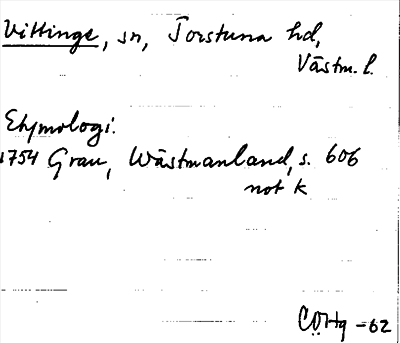 Vittinge, sn, Torstuna hd,
Västm. l.
Etymologi.
1754 Grau, Wästmanland, s. 606
not k
CÖHg -62